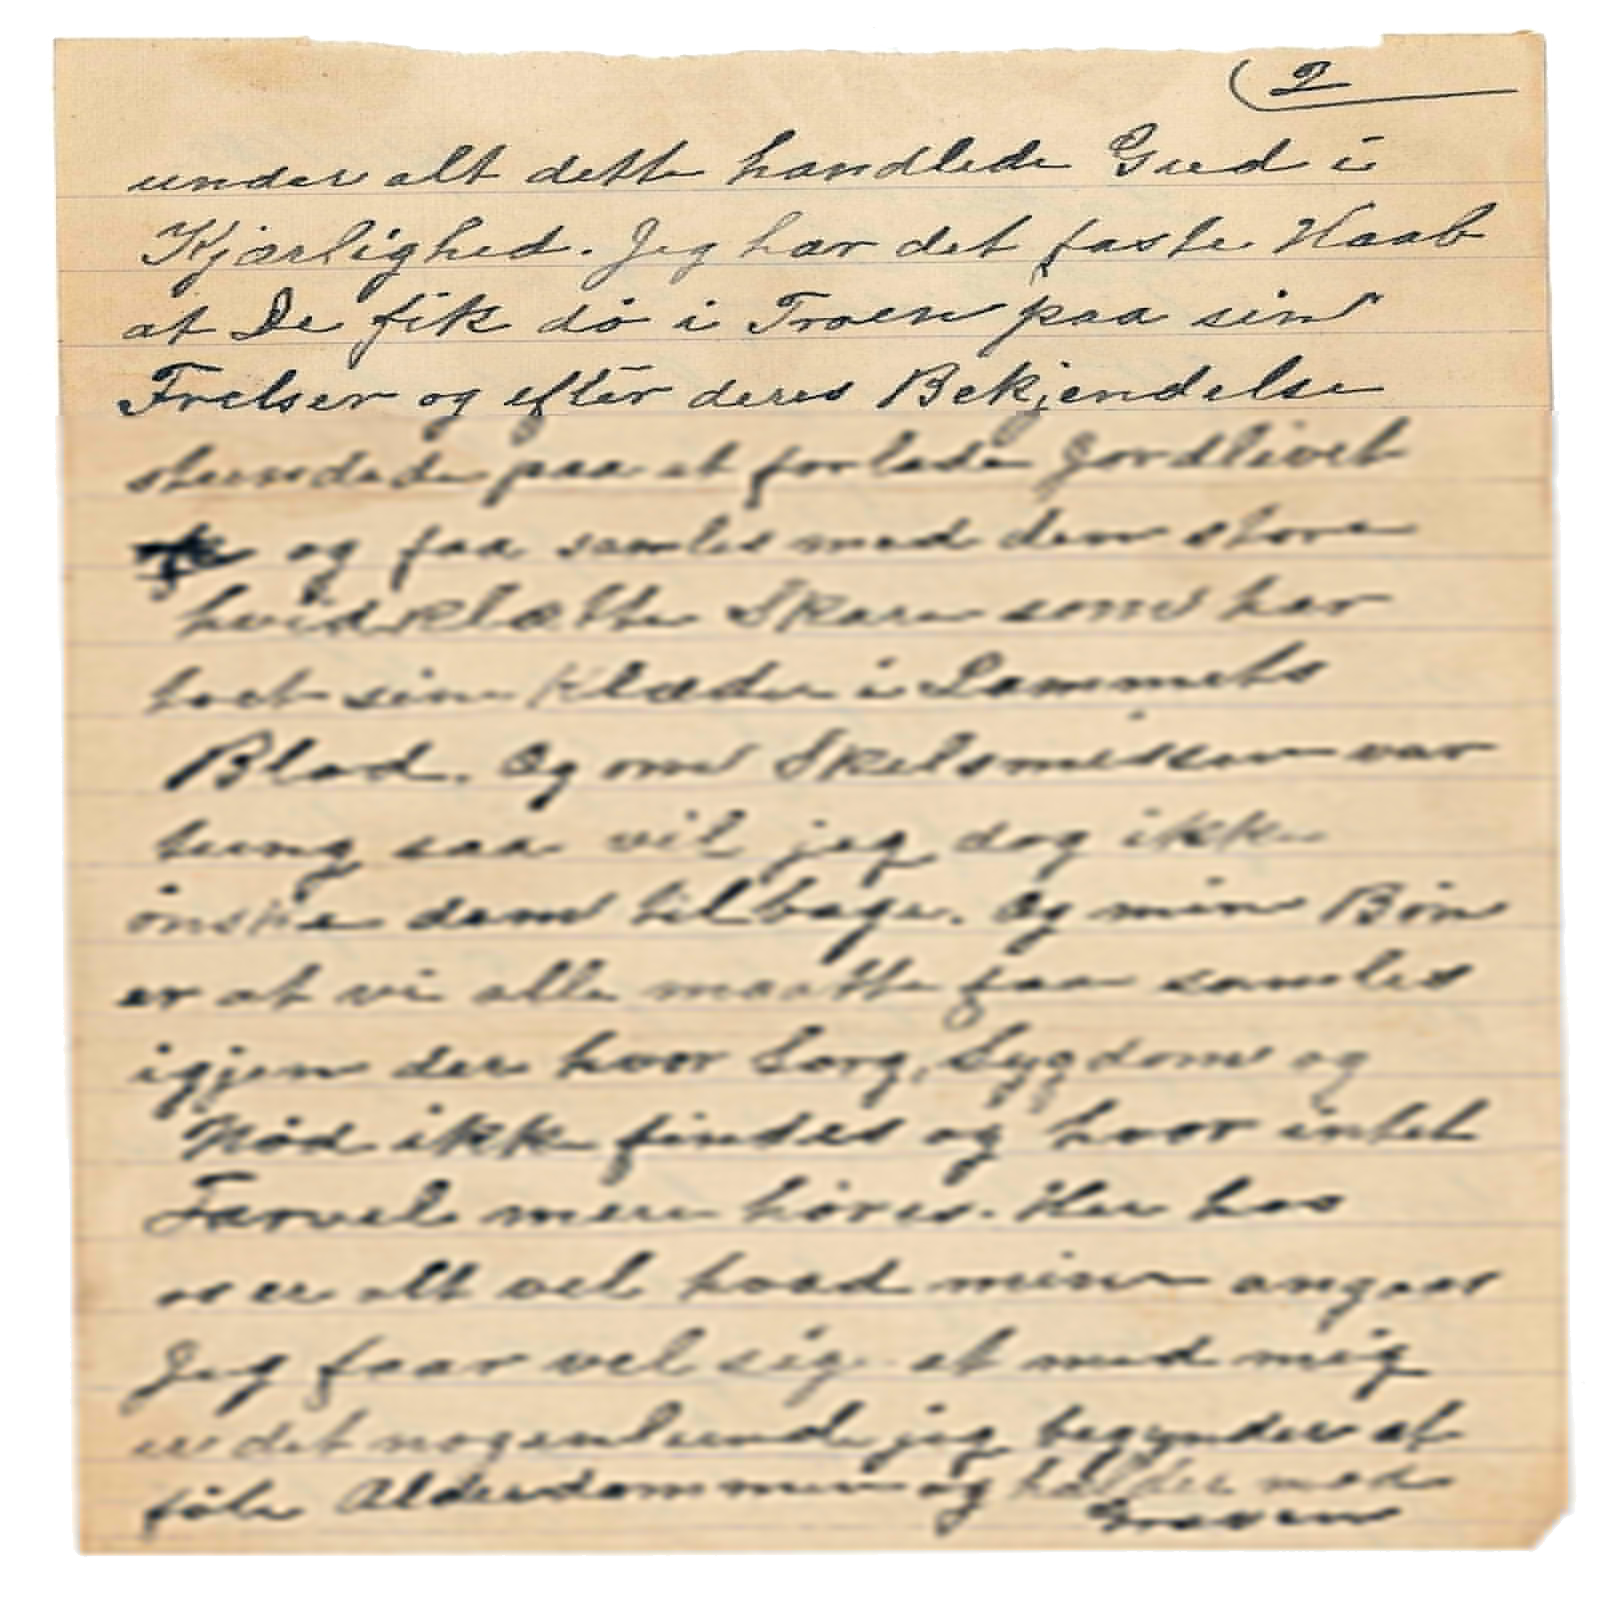 (2
under alt dette handlede Gud i
Kjærlighed. Jeg har det faste Haab
at De fik dö i Troen paa sin
Frelser og efter deres Bekjendelse
stundede paa at forlade Jordlivet
og faa samles med den store
hvidklædte Skare som har
toet sine Klæder i Lammets
Blod. Og om Skilsmissen var
tung saa vil jeg dog ikke
önske dem tilbage. Og min Bön
er at vi alle maatte faa samles
igjen der hvor Sorg, Sygdom og
Nöd ikke findes og hvor intet
Farvel mere höres. Her hos
os er alt vel hvad mine angaar
Jeg faar vel sige at med mig
er det nogenlunde jeg begynder at
föle Alderdommen og halder mod
Graven